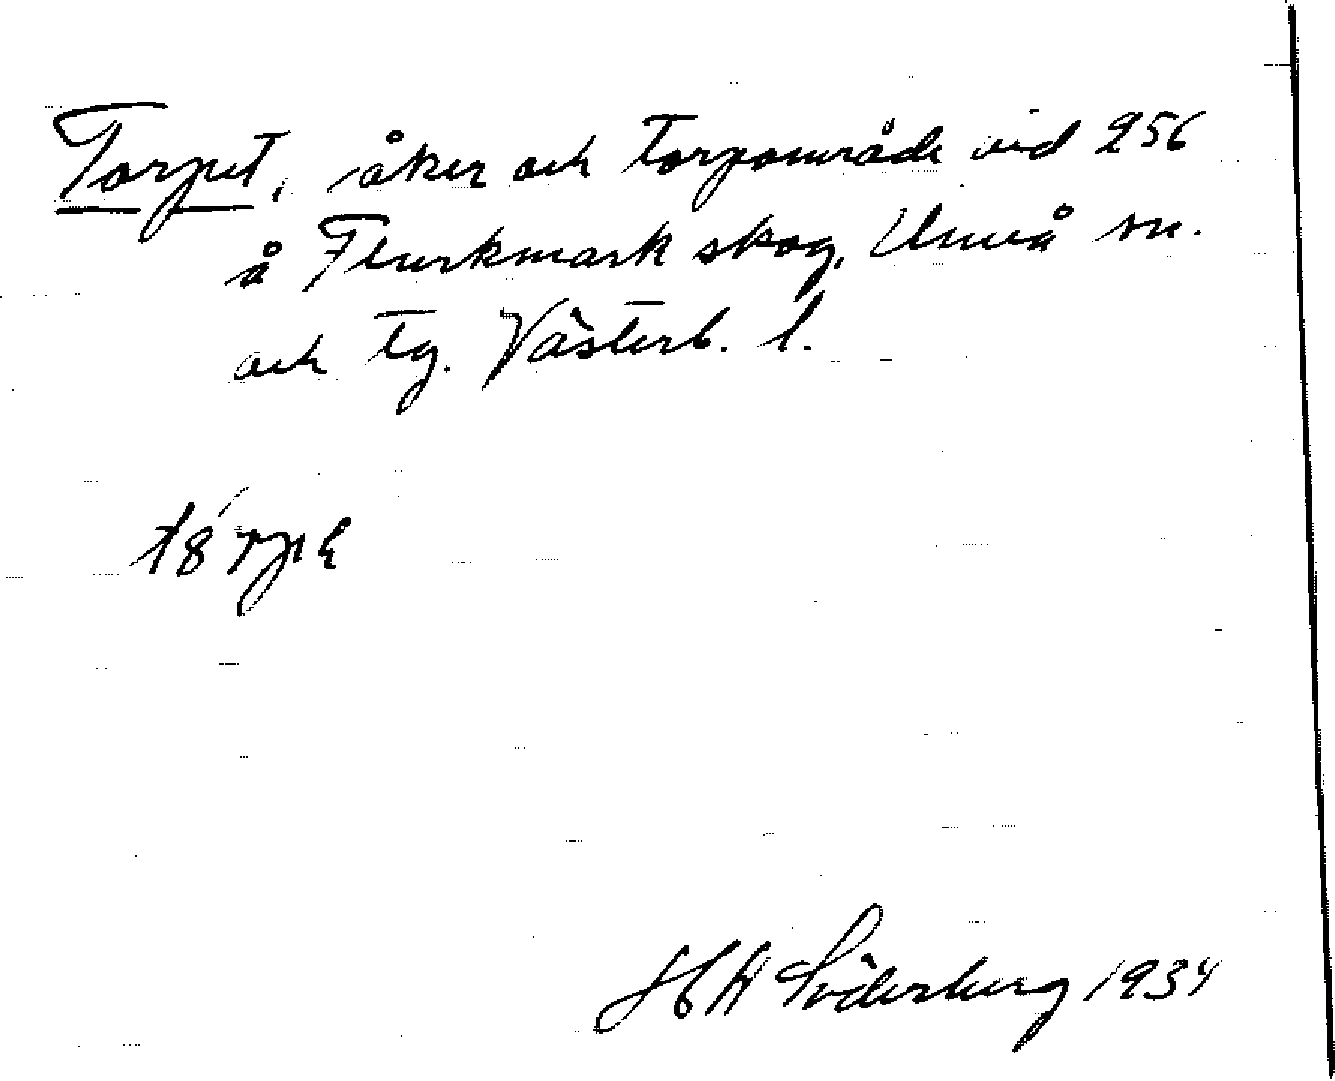 Torpet, åker och torpområde vid 256
å Flurkmark skog, Umeå sn.
och tg. Västerb. l.
H Söderberg 1934